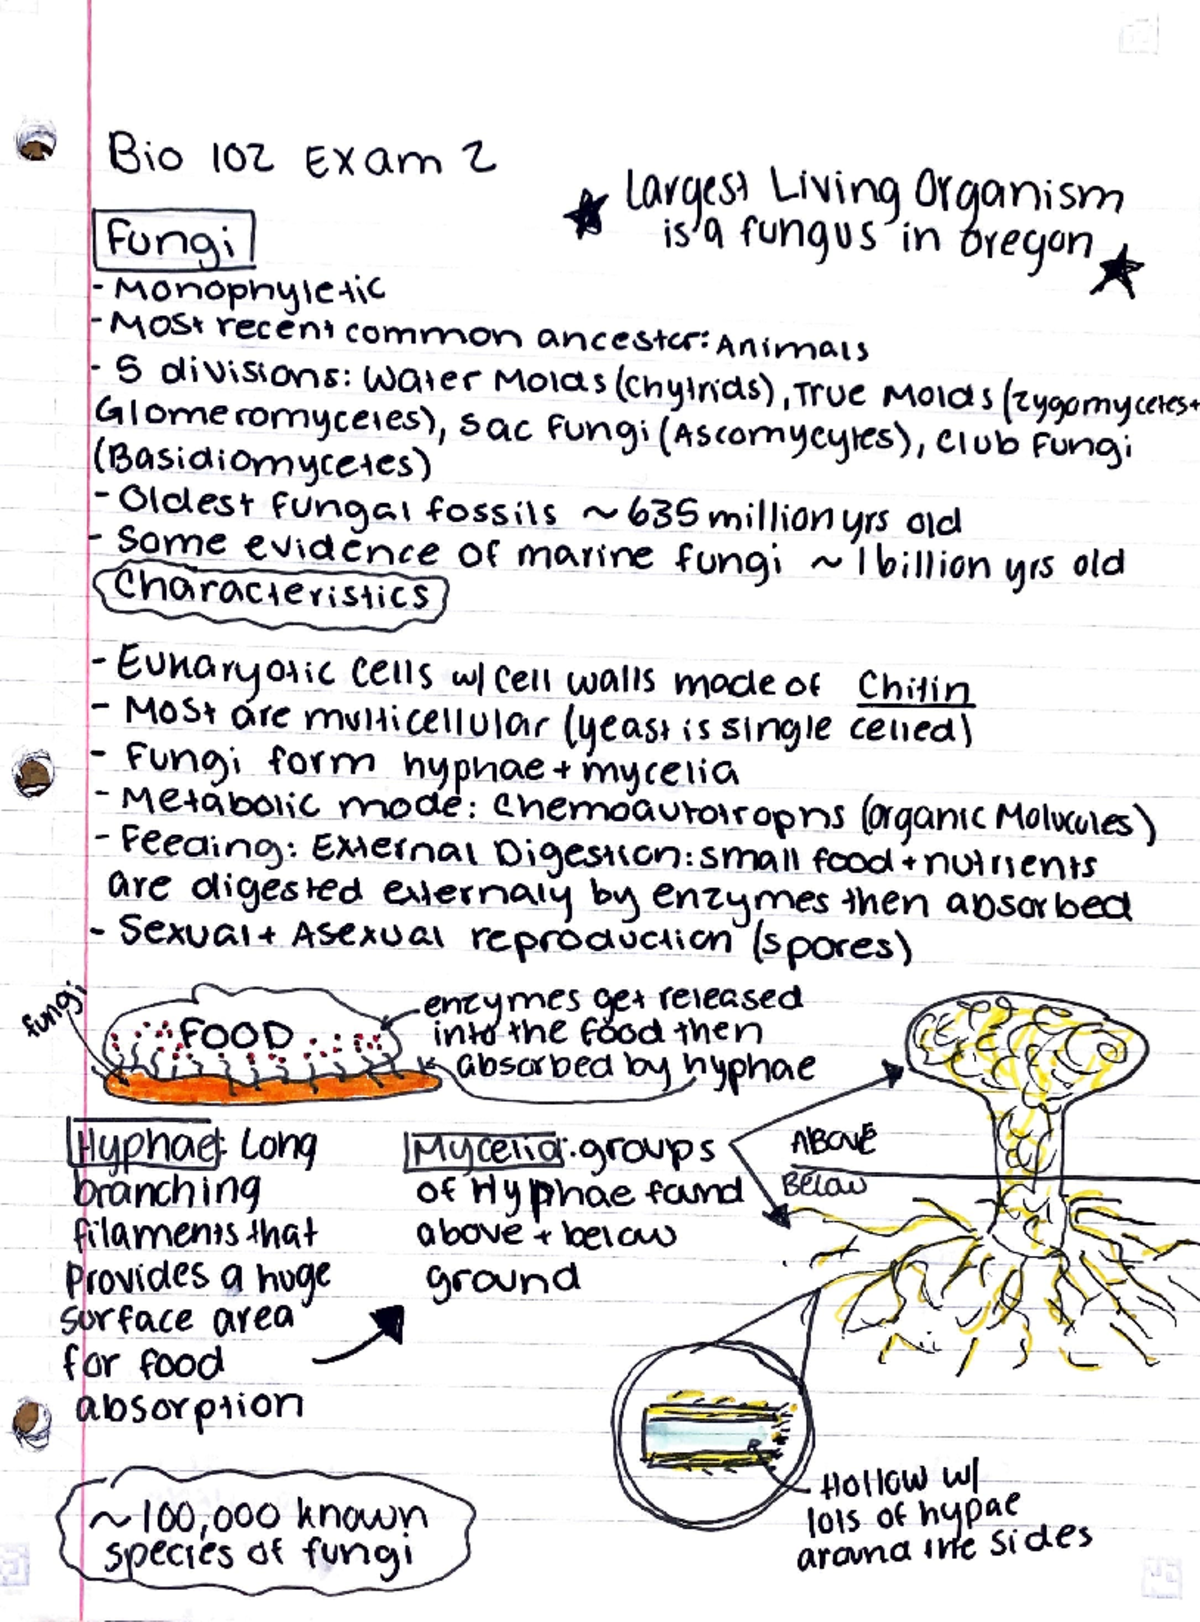 Bio 102 Exam 2
Largest Living Organism
is a fungus in oregon
Fungi
- Monophyletic
- Most recent common ancestor: Animals
- 5 divisions: Water Molds (Chytrids), True Molds (zygomycetes+
Glomeromycetes), Sac Fungi (Ascomycytes), Club Fungi
(Basidiomycetes)
- Oldest fungal fossils ~635 million yrs old
- Some evidence of marine fungi ~1 billion yrs old
Characteristics
- Eukaryotic cells w/ cell walls made of Chitin
- Most are multicellular (yeast is single celled)
- Fungi form hyphae + mycelia
- Metabolic mode: Chemoautotrophs (Organic Molucules)
- Feeding: External Digestion: small food + nutrients
are digested externaly by enzymes then absorbed
- Sexual + Asexual reproduction (spores)
fungi
FOOD
enzymes get released
into the food then
absorbed by hyphae
Hyphae: Long
branching
filaments that
provides a huge
surface area
for food
absorption
Mycelia: groups
of Hyphae found
above + below
ground
ABOVE
Below
Hollow w/
lots of hypae
around the sides
~100,000 known
species of fungi